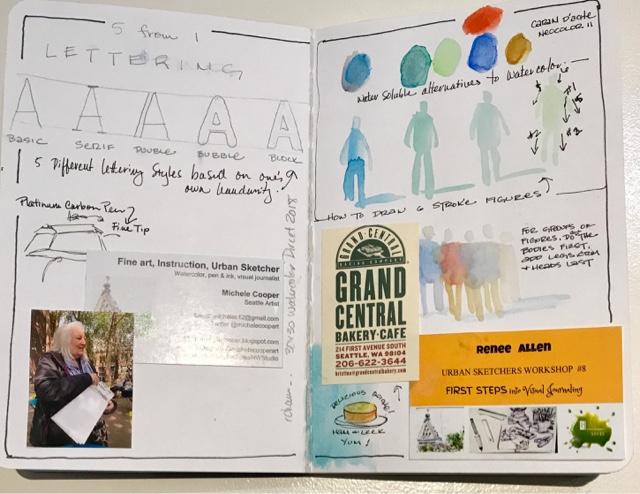 5 from 1
LETTERING
A A A A A
BASIC SERIF DOUBLE BUBBLE BLOCK
5 Different lettering styles based on one's
own handwriting.
Platinum Carbon Pen
Fine Tip
Fine art, Instruction, Urban Sketcher
Watercolor, pen & ink, visual journalist
Michele Cooper
Seattle Artist
30x30 Watercolor Direct 2018
CARAN D'ACHE
NEOCOLOR II
Water Soluble alternatives to Watercolor
#1
#2
HOW TO DRAW 6 STROKE FIGURES
FOR GROUPS OF
FIGURES, DO THE
BODIES FIRST,
ADD LEGS, ARM
+ HEADS LAST
GRAND·CENTRAL
BAKING COMPANY
GRAND
CENTRAL
BAKERY·CAFE
214 FIRST AVENUE SOUTH
SEATTLE, WA 98104
206-622-3644
DELICIOUS
HAM + LEEK
YUM!
RENEE ALLEN
URBAN SKETCHERS WORKSHOP #8
FIRST STEPS into Visual Journaling